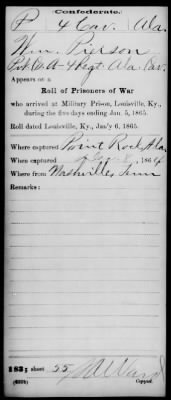 Confederate.
P 4 Cav. Ala.
Wm. Pierson
Pvt Co A - 4 Regt. Ala. Cav.
Appears on a
Roll of Prisoners of War
who arrived at Military Prison, Louisville, Ky.,
during the five days ending Jan. 5, 1865.
Roll dated Louisville, Ky., Jan'y 6, 1865.
Where captured Point Rock, Ala
When captured 8, 1864
Where from Nashville, Tenn
Remarks:
sheet 55
Copyist.